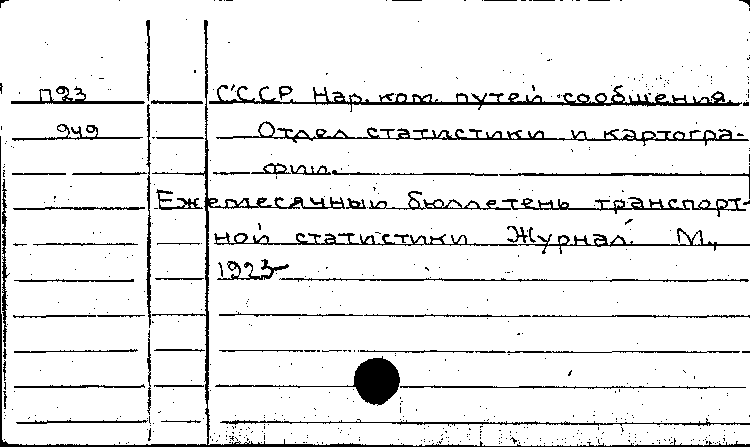 П23 С.С.С.Р. Нар. ком. путей сообщения.
949 Отдел статистики и картогра-
фии.
Ежемесячный бюллетень транспорт-
ной статистики Журнал. М.,
1923-